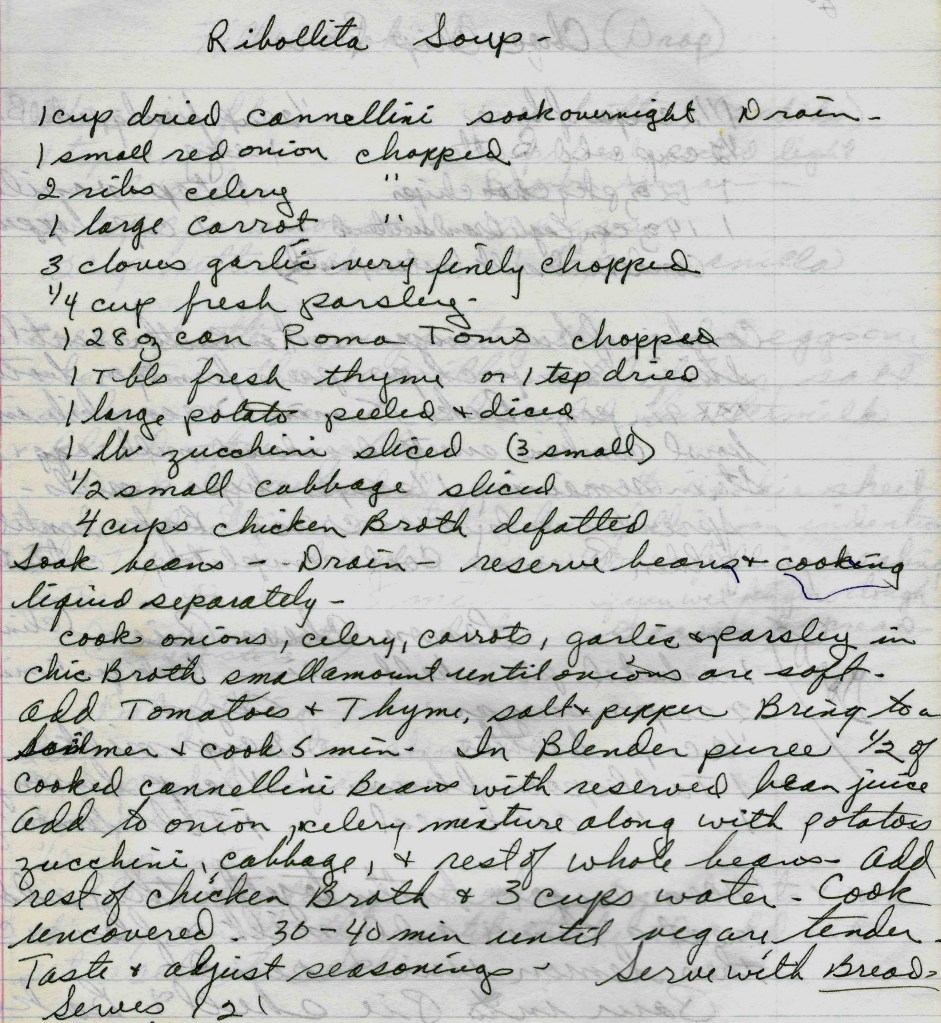 Ribollita Soup -
1 cup dried cannellini soak overnight Drain -
1 small red onion chopped
2 ribs celery "
1 large carrot "
3 cloves garlic very finely chopped
1/4 cup fresh parsley -
1 28 oz can Roma Toms chopped
1 Tbls fresh thyme or 1 tsp dried
1 large potato peeled + diced
1 lb zucchini sliced (3 small)
1/2 small cabbage sliced
4 cups chicken Broth defatted
Soak beans - - Drain - reserve beans + cooking
liquid separately -
cook onions, celery, carrots, garlic & parsley in
chic Broth small amount until onions are soft -
add Tomatoes + Thyme, salt + pepper Bring to a
simmer + cook 5 min - In Blender puree 1/2 of
cooked cannellini Beans with reserved bean juice
add to onion, celery mixture along with potatoes
zucchini, cabbage, + rest of whole beans - add
rest of chicken Broth & 3 cups water - Cook
uncovered - 30 - 40 min until vegars tender -
Taste & adjust seasonings - Serve with Bread -
Serves 12